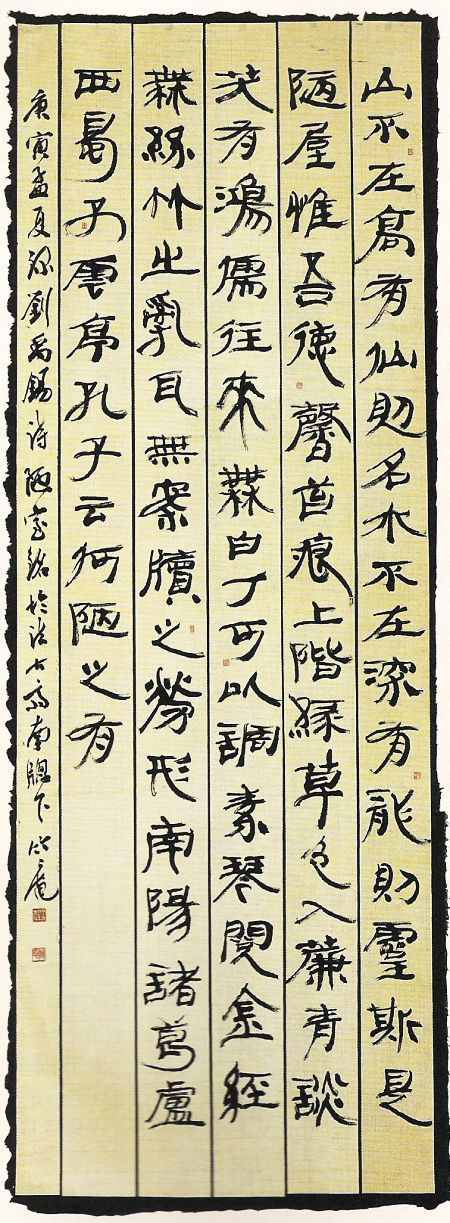 山不在高有仙則名水不在深有龍則靈斯是
陋屋惟吾德馨苔痕上階緑草色入簾青談
笑有鴻儒往來無白丁可以調素琴閱金經
無絲竹之亂耳無案牘之勞形南陽諸葛廬
西蜀子雲亭孔子云何陋之有
庚寅孟夏錄劉禹錫詩陋室銘於齋南牕下庵